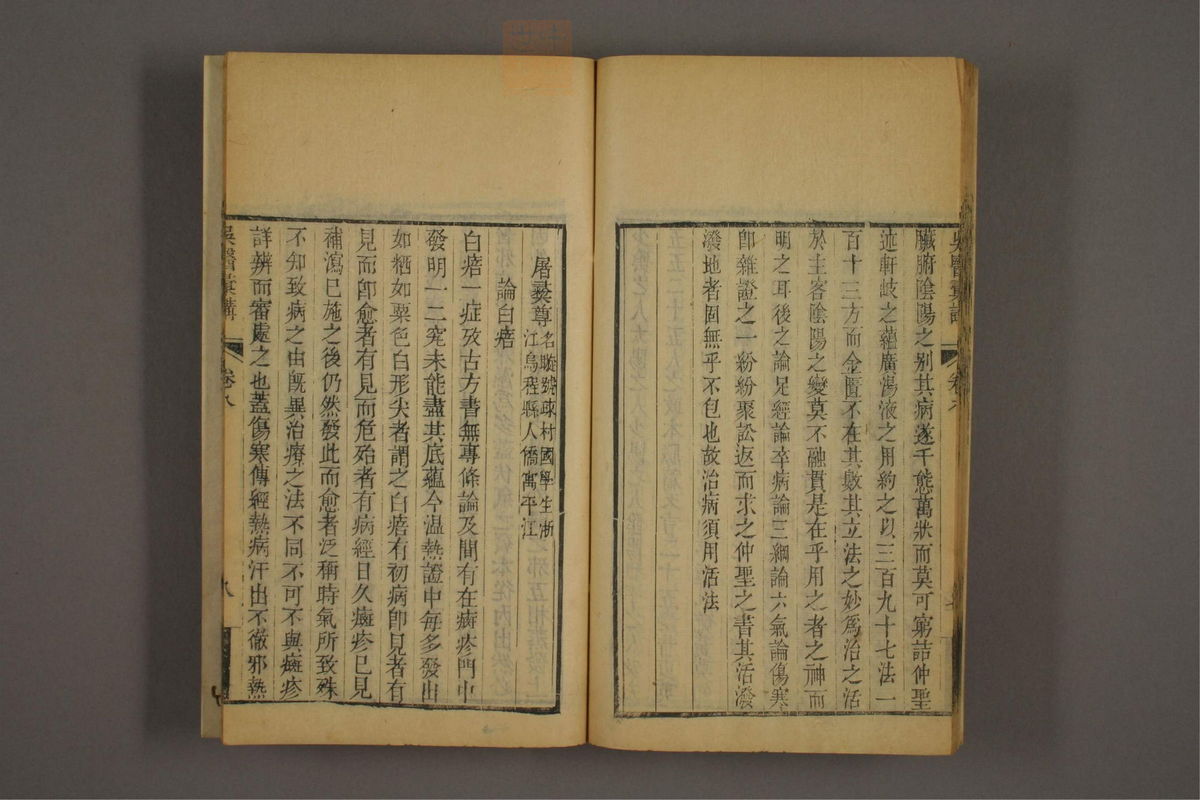 臟腑陰陽之别其病遂千態萬狀而莫可窮詰仲聖
述軒岐之蘊廣湯液之用約之以三百九十七法一
百十三方而金匱不在其數其立法之妙爲治之活
於主客陰陽之變莫不融貫是在乎用之者之神而
明之耳後之論足經論卒病論三綱論六氣論傷寒
卽雜證之一紛紛聚訟返而求之仲聖之書其活潑
潑地者固無乎不包也故治病須用活法
屠彛尊 名 號疎村國學生浙
江烏程縣人僑寓平江
論白㾦
白㾦一症攷古方書無專條論及間有在癍疹門中
發明一二究未能盡其底蘊今温熱證中每多發出
如粞如粟色白形尖者謂之白㾦有初病卽見者有
見而卽愈者有見而危殆者有病經日久癍疹已見
補瀉已施之後仍然發此而愈者泛稱時氣所致殊
不知致病之由旣異治療之法不同不可不與癍疹
詳辨而審處之也蓋傷寒傳經熱病汗出不徹邪熱
吳醫彙講 卷八 八